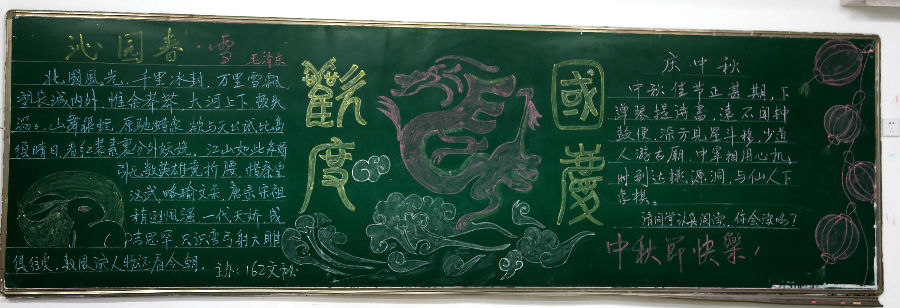 沁园春·雪
毛泽东
北國風光,千里冰封,万里雪飄
望長城内外,惟余莽莽,大河上下,頓失
滔々,山舞銀蛇,原馳蜡象,欲与天公試比高
須晴日,看红装素裹,分外妖娆。江山如此多嬌
引无数英雄竞折腰,惜秦皇
汉武,略输文采,唐宗宋祖
稍逊風骚,一代天娇,成
吉思罕,只识弯弓射大雕
俱往矣,数風流人物还看今朝。
主办:162文秘
歡度
國慶
庆中秋
中秋佳节正甚期,下
弹琴提诗画,遠不闻钟
鼓便
人游古廟,中宰相用心机,
时到达桃源洞,与仙人下
盘棋。
请同学认真阅读,你会读吗?
中秋節快樂!